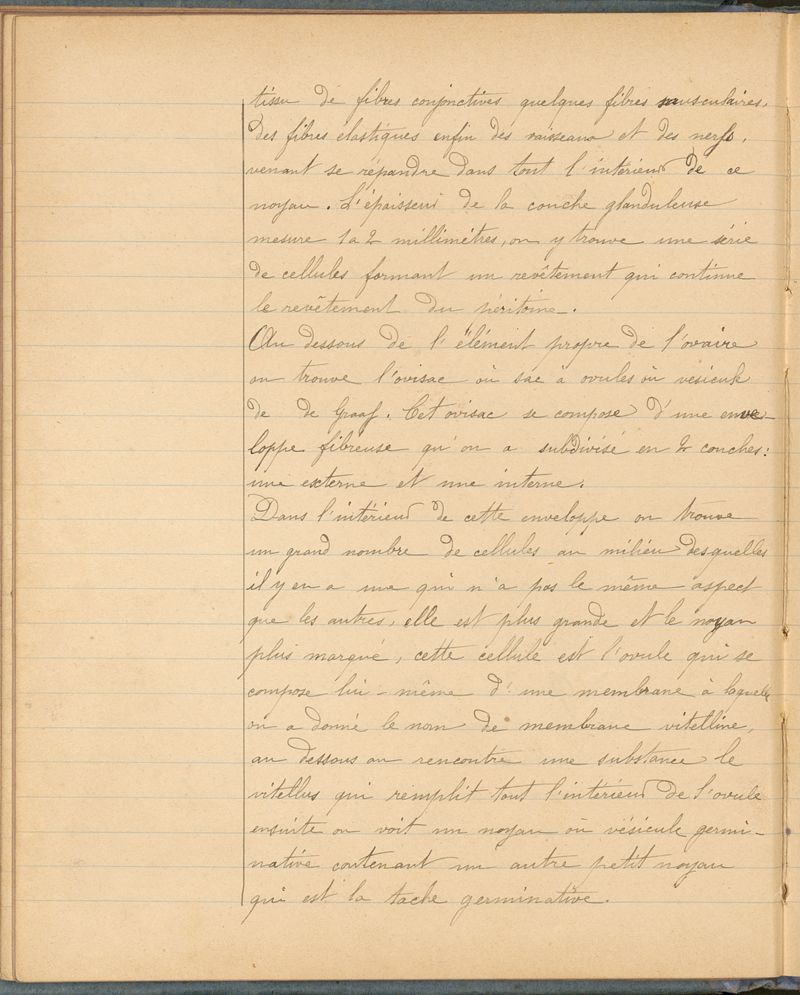 tissu de fibres conjonctives quelques fibres musculaires.
Des fibres élastiques enfin des vaisseaux et des nerfs.
venant se répandre dans tout l'intérieur de ce
noyau. L'épaisseur de la couche glanduleuse
mesure 1 à 2 millimètres, on y trouve une série
de cellules formant un revêtement qui continue
le revêtement du péritoine.
Au dessous de l'élément propre de l'ovaire
on trouve l'ovisac où sac à ovules où vésicule
de de Graaf. Cet ovisac se compose d'une enve-
loppe fibreuse qu'on a subdivisé en 2 couches:
une externe et une interne.
Dans l'intérieur de cette enveloppe on trouve
un grand nombre de cellules au milieu desquelles
il y en a une qui n'a pas le même aspect
que les autres, elle est plus grande et le noyau
plus marqué, cette cellule est l'ovule qui se
compose lui-même d'une membrane à laquelle
on a donné le nom de membrane vitelline,
au dessous on rencontre une substance le
vitellus qui remplit tout l'intérieur de l'ovule
ensuite on voit un noyau où vésicule germi-
native contenant un autre petit noyau
qui est la tache germinative.